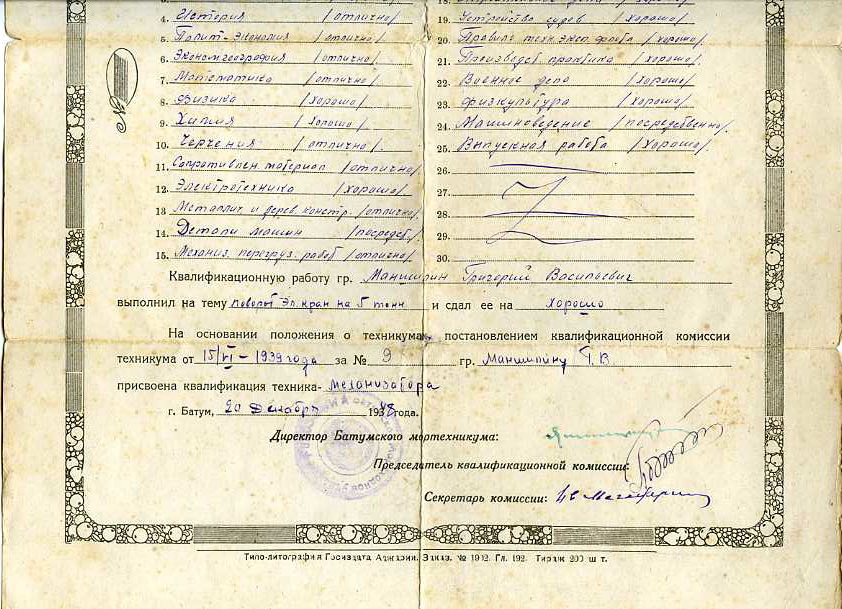 4. История /отлично/
5. Полит-Экономия /отлично/
6. Экономгеография /отлично/
7. Математика /отлично/
8. Физика /хорошо/
9. Химия /хорошо/
10. Черчения /отлично/
11. Сопротивлен. материал /отлично/
12. Электротехника /хорошо/
13 Металлич. и дерев. констр. /отлично/
14. Детали машин /посредст/
15. Механиз. перегруз. работ /отлично/
19. Устройство судов /хорошо/
20. Правила техн. эксп. флота /хорошо/.
21. Производст. практика /хорошо/.
22. Военное дело /хорошо/
23. Физкультура /хорошо/
24. Машиноведение /посредственно/
25. Выпускная работа /хорошо/
26.
27.
28.
29.
30.
№
Квалификационную работу гр. Маншилин Григорий Васильевич
выполнил на тему поворот Эл. кран на 5 тонн и сдал ее на хорошо
На основании положения о техникумах постановлением квалификационной комиссии
техникума от 15/VI – 1939 года за № 9 гр. Маншилину Г. В.
присвоена квалификация техника- механизатора
г. Батум, 20 Декабря 1938 года.
Директор Батумского мортехникума:
Председатель квалификационной комиссии:
Секретарь комиссии:
Типо-литография Госиздата Аджарии. Заказ. № 1902. Гл. 192. Тираж 200 шт.